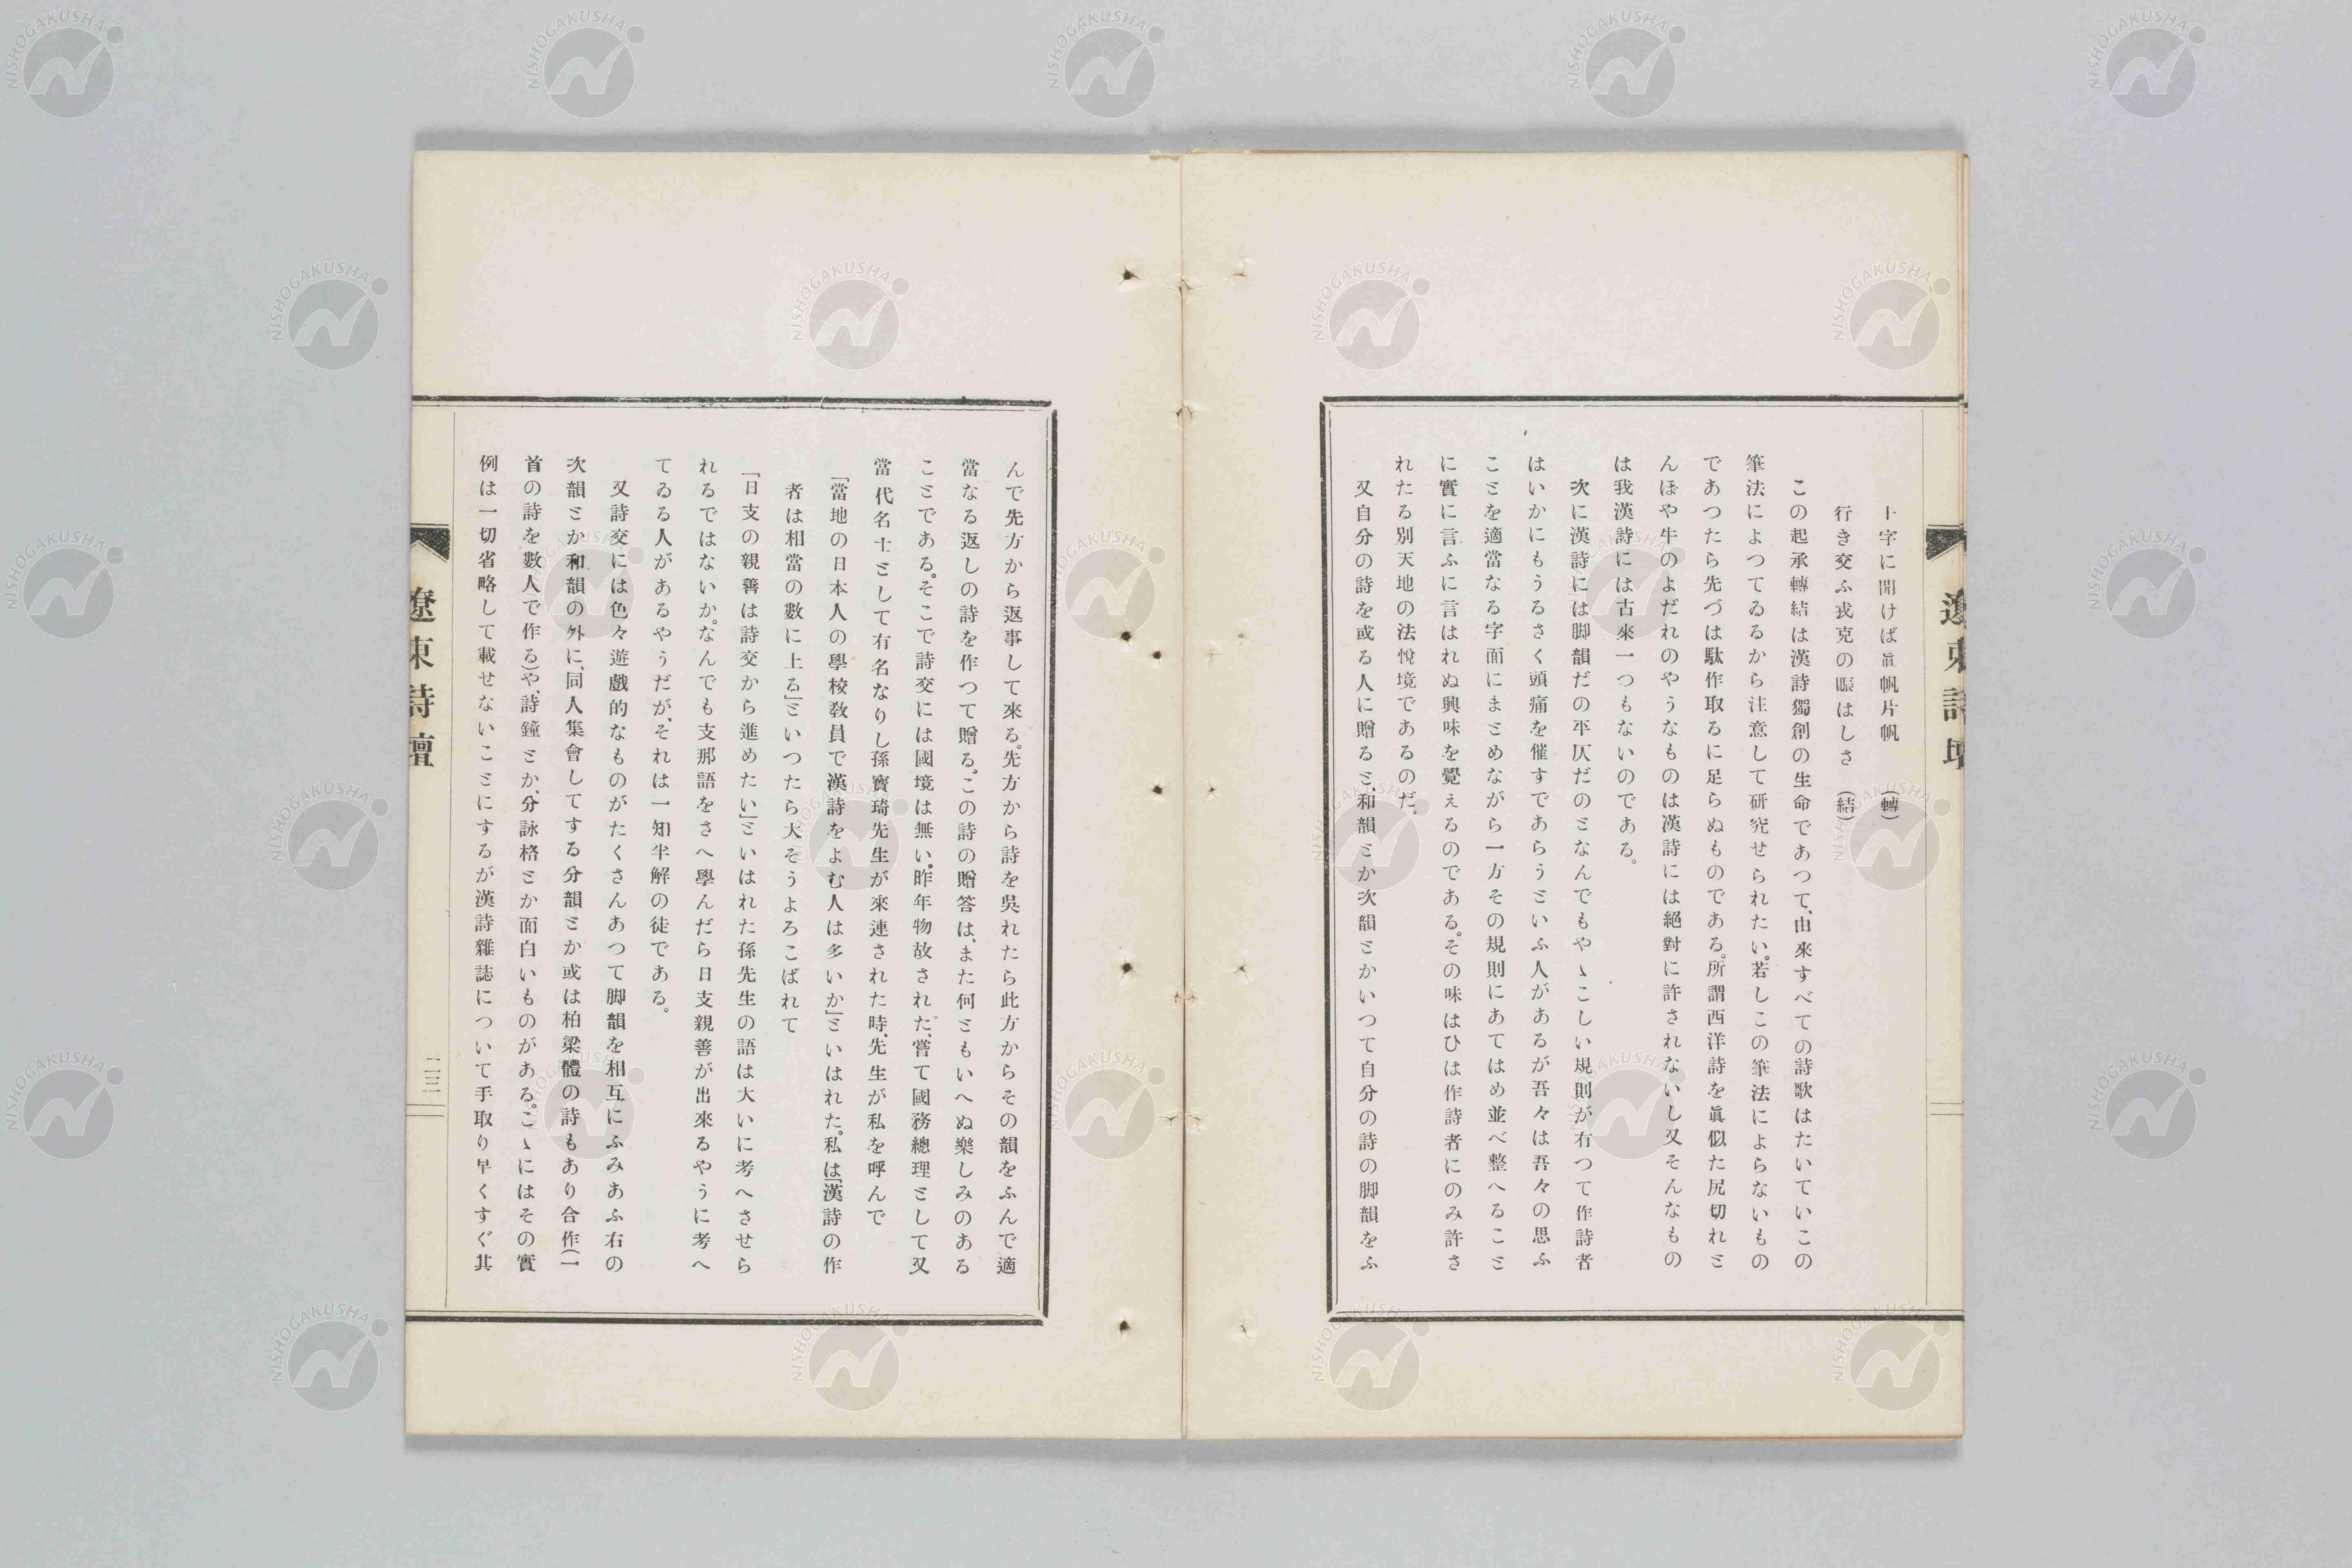 十字に開けば眞帆片帆 (轉)
行き交ふ戎克の賑はしさ (結)
この起承轉結は漢詩獨創の生命であつて、由來すべての詩歌はたいていこの
筆法によつてゐるから注意して研究せられたい。若しこの筆法によらないもの
であつたら先づは駄作取るに足らぬものである。所謂西洋詩を眞似た尻切れと
んぼや牛のよだれのやうなものは漢詩には絕對に許されないし又そんなもの
は我漢詩には古來一つもないのである。
次に漢詩には脚韻だの平仄だのとなんでもやゝこしい規則が有つて作詩者
はいかにもうるさく頭痛を催すであらうといふ人があるが吾々は吾々の思ふ
ことを適當なる字面にまとめながら一方その規則にあてはめ並べ整へること
に實に言ふに言はれぬ興味を覺えるのである。その味はひは作詩者にのみ許さ
れたる別天地の法悅境であるのだ。
又自分の詩を或る人に贈ると、和韻とか次韻とかいつて自分の詩の脚韻をふ
遼東詩壇
んで先方から返事して來る。先方から詩を吳れたら此方からその韻をふんで適
當なる返しの詩を作つて贈る。この詩の贈答は、また何ともいへぬ樂しみのある
ことである。そこで詩交には國境は無い。昨年物故された、嘗て國務總理として又
當代名士として有名なりし孫寶琦先生が來連された時、先生が私を呼んで
「當地の日本人の學校敎員で漢詩をよむ人は多いか」といはれた。私は「漢詩の作
者は相當の數に上る」といつたら大そうよろこばれて
「日支の親善は詩交から進めたい」といはれた孫先生の語は大いに考へさせら
れるではないか。なんでも支那語をさへ學んだら日支親善が出來るやうに考へ
てゐる人があるやうだが、それは一知半解の徒である。
又詩交には色々遊戲的なものがたくさんあつて脚韻を相互にふみあふ右の
次韻とか和韻の外に、同人集會してする分韻とか或は柏梁體の詩もあり合作(一
首の詩を數人で作る)や、詩鐘とか、分詠格とか面白いものがある。こゝにはその實
例は一切省略して載せないことにするが漢詩雜誌について手取り早くすぐ其
遼東詩壇
二三